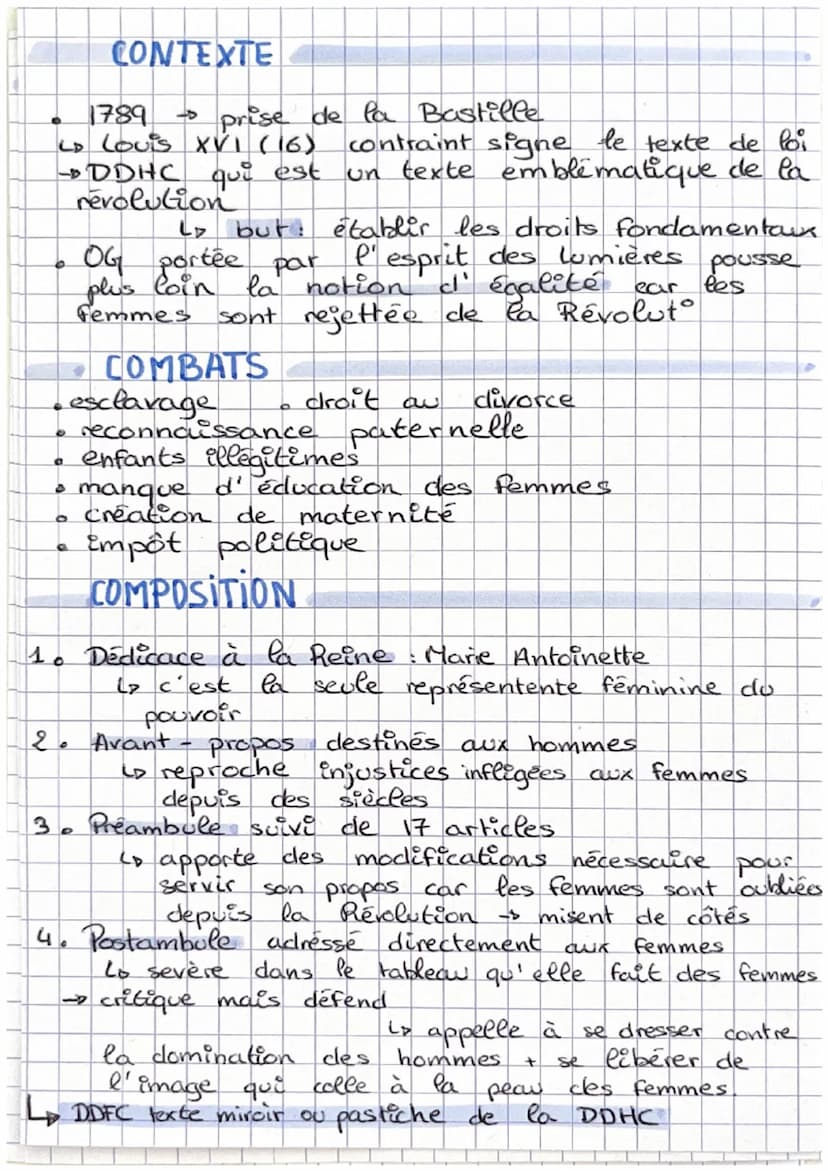 CONTEXTE
• 1789 → prise de la Bastille
↳ Louis XVI (16) contraint signe le texte de loi
→ DDHC qui est un texte emblématique de la
révolution
↳ but : établir les droits fondamentaux
• OG portée par l'esprit des lumières pousse
plus loin la notion d'égalité car les
femmes sont rejettée de la Révolut°
• COMBATS
• esclavage • droit au divorce
• reconnaissance paternelle
• enfants illégitimes
• manque d'éducation des femmes
• création de maternité
• impôt politique
COMPOSITION
1. Dédicace à la Reine : Marie Antoinette
↳ c'est la seule représentente féminine du
pouvoir
2. Avant-propos destinés aux hommes
↳ reproche injustices infligées aux femmes
depuis des siècles
3. Préambule suivi de 17 articles
↳ apporte des modifications nécessaire pour
servir son propos car les femmes sont oubliées
depuis la Révolution → misent de côtés
4. Postambule adréssé directement aux femmes
↳ sevère dans le tableau qu'elle fait des femmes
→ critique mais défend
↳ appelle à se dresser contre
la domination des hommes + se libérer de
l'image qui colle à la peau des femmes.
↳ DDFC texte miroir ou pastiche de la DDHC